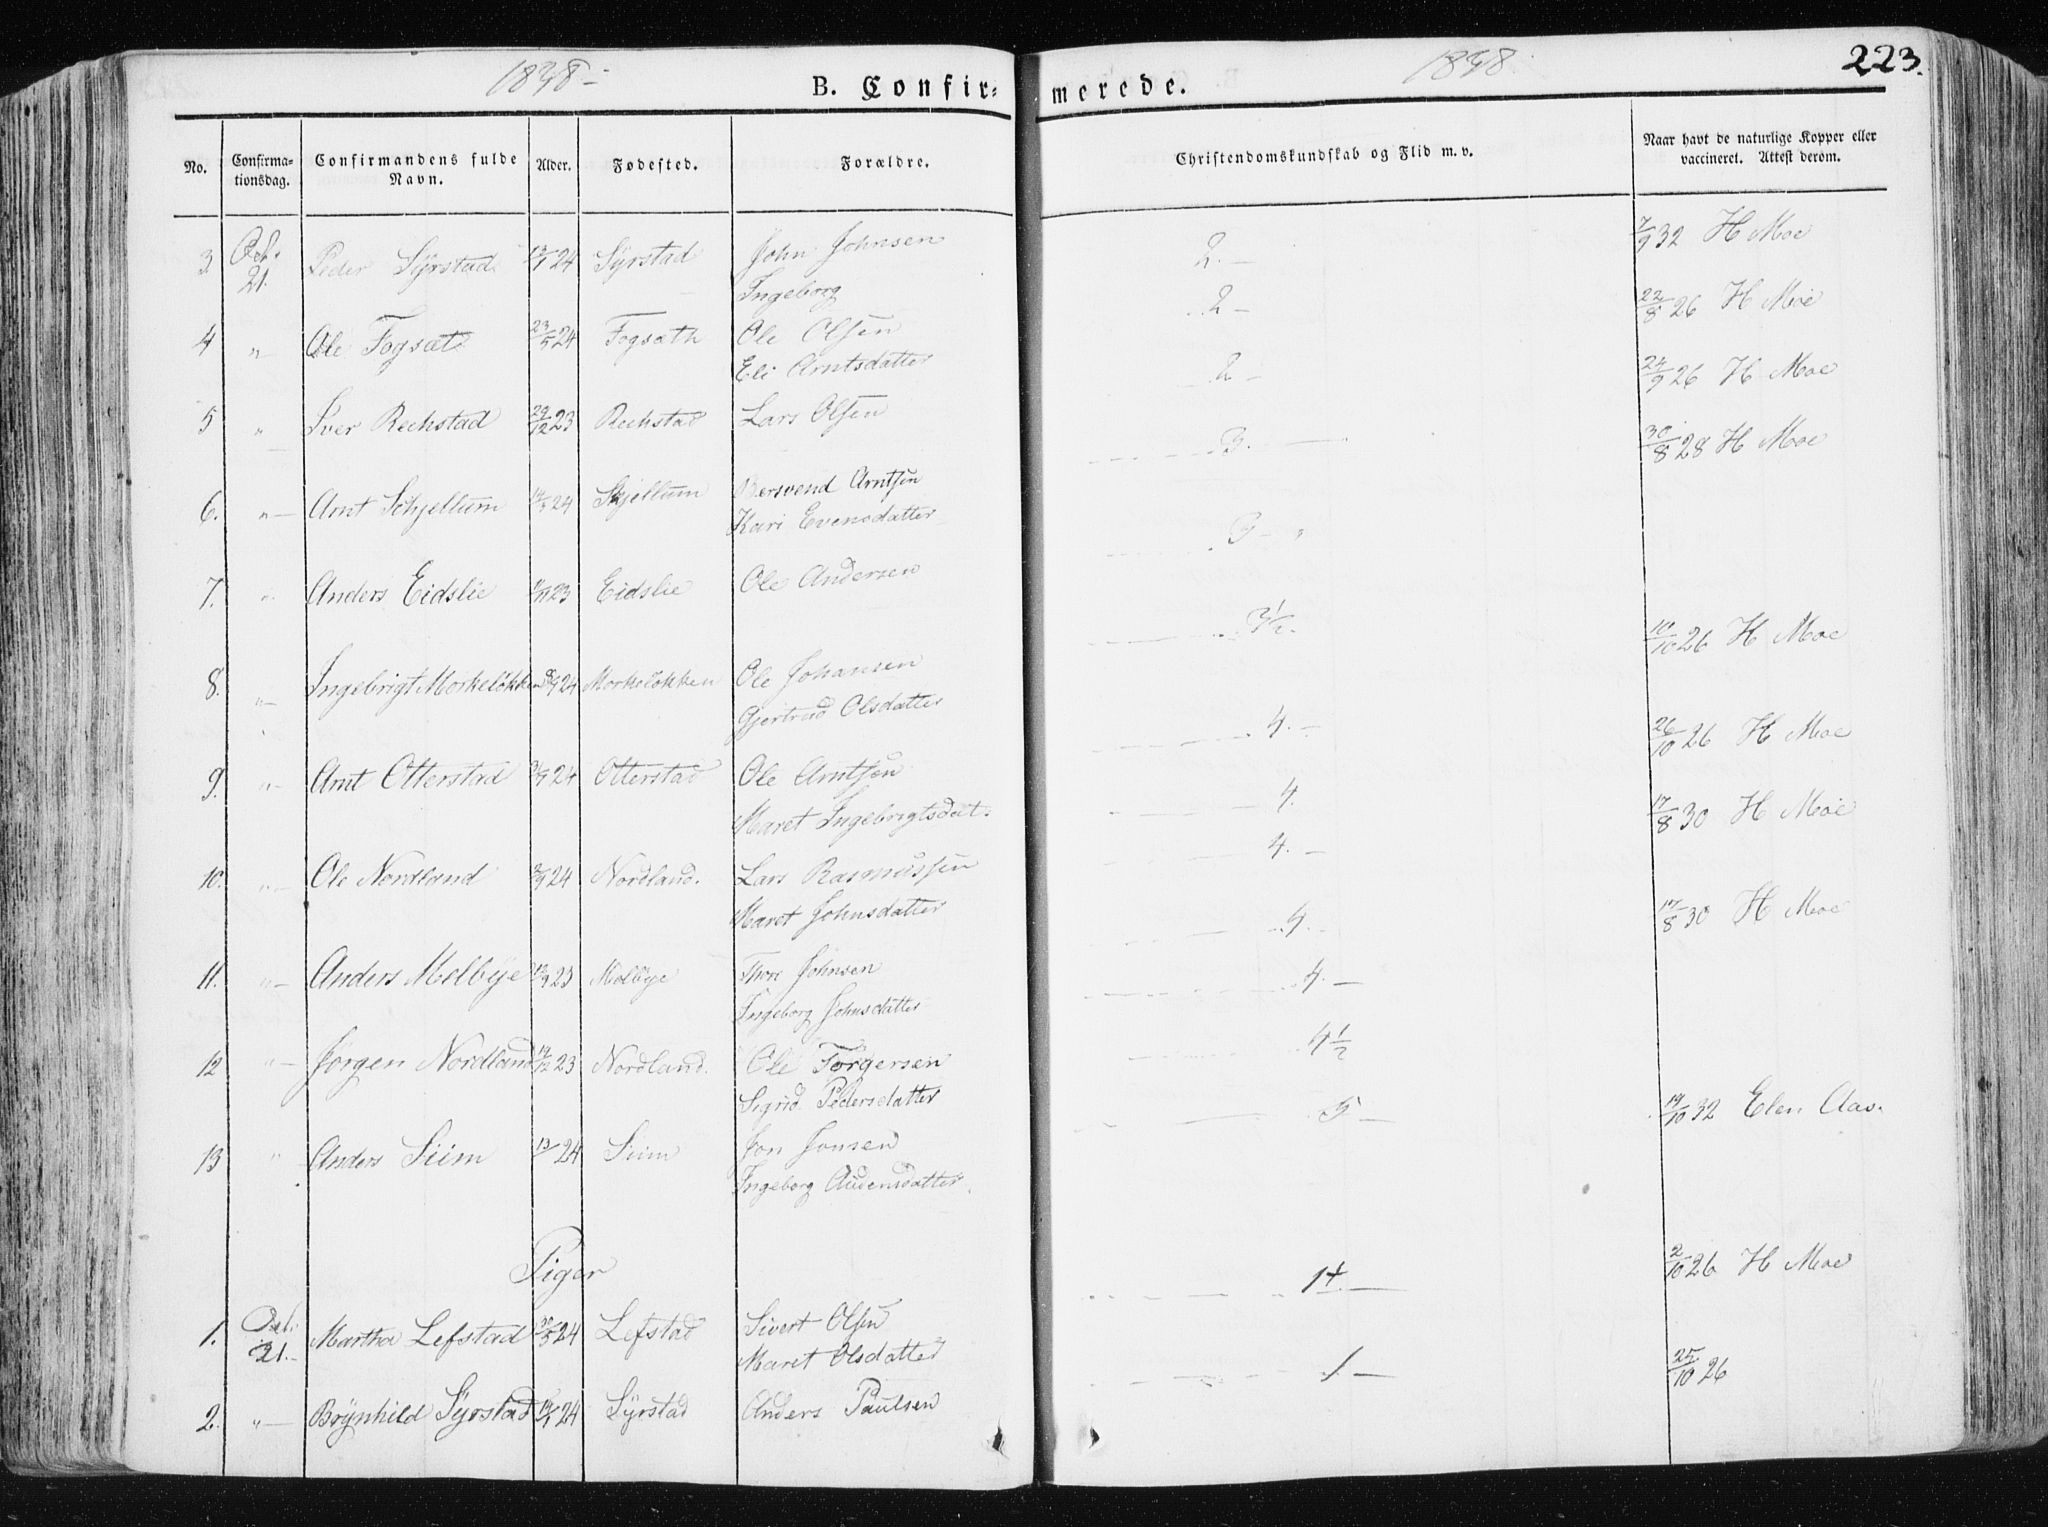 1838
B. Confir-
merede.
1838
223.
No.
Confirma-
tionsdag.
Confirmandens fulde
Navn.
Alder.
Fødested.
Forældre.
Christendomskundskab og Flid m. v.
Naar havt de naturlige Kopper eller
vaccineret. Attest derom.
3. Oct. 21. Peder Sÿrstad 24 Sÿrstad John Johnsen 2.— 7/9 32 H Moe
Ingeborg
4 „— Ole Fogsæt 23/5 24 Fogsæth Ole Olsen 2— 22/8 26 H Moe
Eli Arntsdatter
5 „ Iver Rechstad 29/12 23 Rechstad Lars Olsen 2— 24/9 26 H Moe
6. „— Arnt Schjellum 24 Skjellum Bersvend Arntsen 3.— 30/8 28 H Moe
Kari Evensdatter
7. „ Anders Eidslie 23 Eidslie Ole Andersen 3—
8. „— Ingebrigt Morkeløkken 24 Morkeløkken Ole Johansen 3½. 10/10 26 H Moe
Gjertrud Olsdatter
9. „— Arnt Otterstad 24 Otterstad Ole Arntsen 4.— 26/10 26 H Moe
Maret Ingebrigtsdat.
10. „— Ole Nordland 24 Nordland. Lars Rasmussen 4. 17/8 30 H Moe
Maret Johnsdatter 4.—
11. „— Anders Melbÿe 23 Melbÿe Thore Johnsen 4.— 17/8 30 H Moe
Ingeborg Johnsdatter 4.—
12 „— Jørgen Nordland 23 Nordland. Ole Jørgersen 4½
Sigrid Pedersdatter
13 „ Anders Siim 24 Siim Jon Jonsen 5— 19/10 32 Elen Aas.
Ingeborg Audensdatter.
Piger
1. Oct. 21.— Martha Lefstad 24 Lefstad Sivert Olsen 1+— 2/10 26 H Moe
Maret Olsdatter
2. „— Brÿnhild Sÿrstad 24 Sÿrstad Anders Paulsen 1— 25/10 26